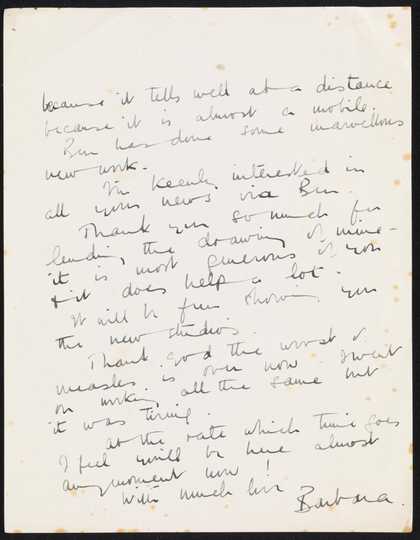 because it tells well at a distance
because it is almost a mobile.
Ben has done some marvellous
new work.
I'm keenly interested in
all your news via Ben.
Thank you so much for
lending the drawing of mine -
it is most generous of you
& it does help a lot.
It will be fun showing you
the new studios.
Thank god the worst of
measles is over now. I went
on working all the same but
it was tiring.
at the rate which time goes
I feel you'll be here almost
any moment now!
With much love
Barbara.